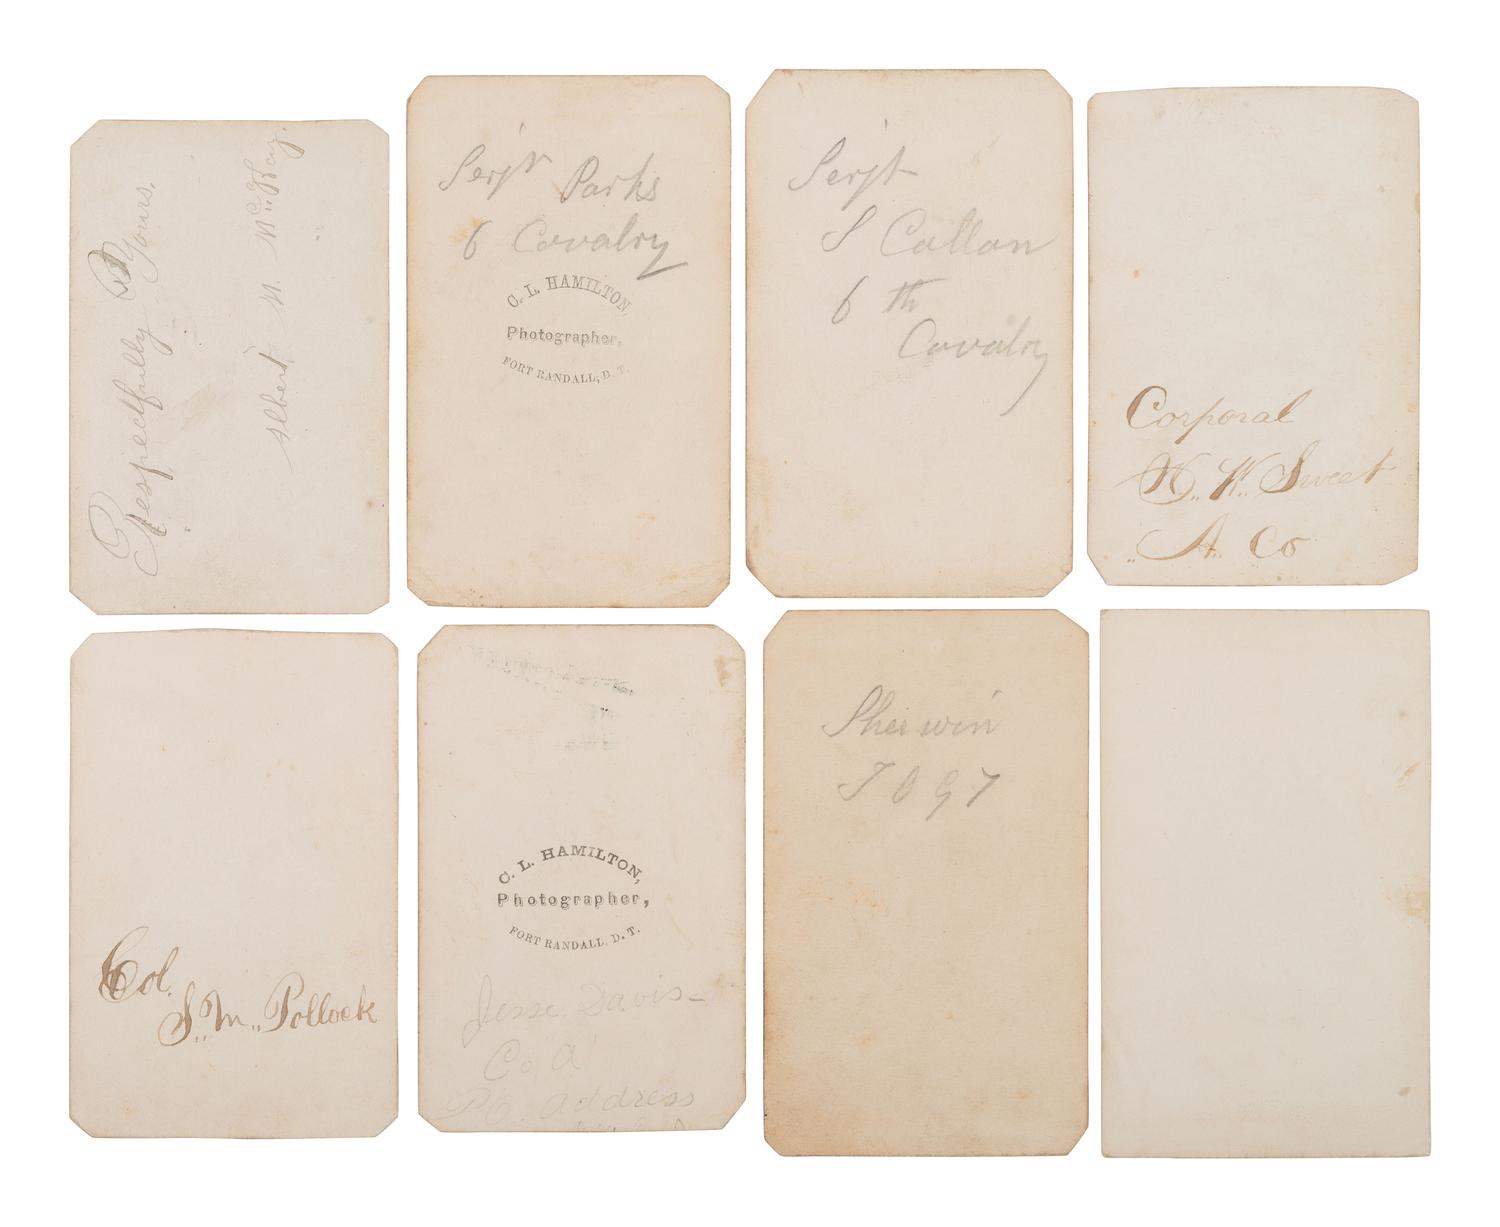 Respectfully Yours,
Albert N. McKay.
Serjt Parks
6 Cavalry
C. L. HAMILTON,
Photographer,
FORT RANDALL, D. T.
Serjt
S Callan
6 th
Cavalry
Corporal
W. Sweet
A. Co
Col.
S. M. Pollock
C. L. HAMILTON,
Photographer,
FORT RANDALL. D. T.
Jesse Davis-
Co. A
P.O. address
Sherwin